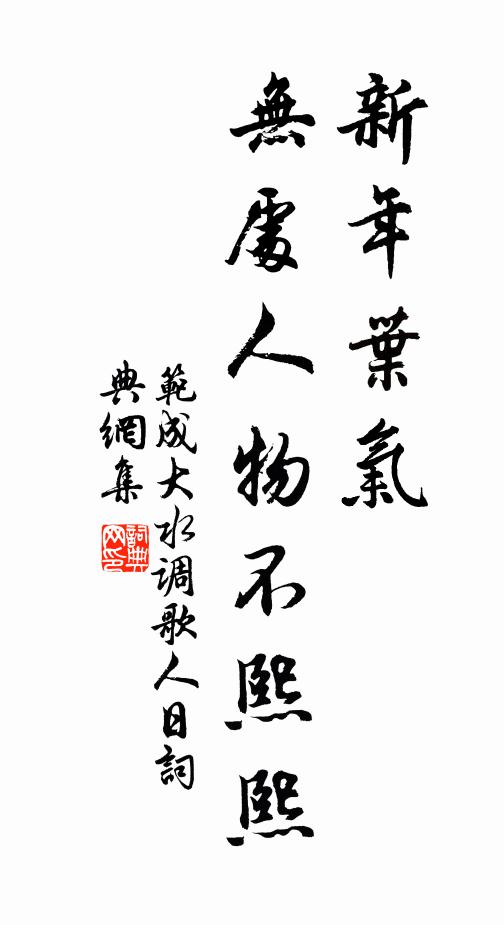 新年葉氣
無處人物不熙熙
範成大水调歌人日詞
典網集
詞典網印